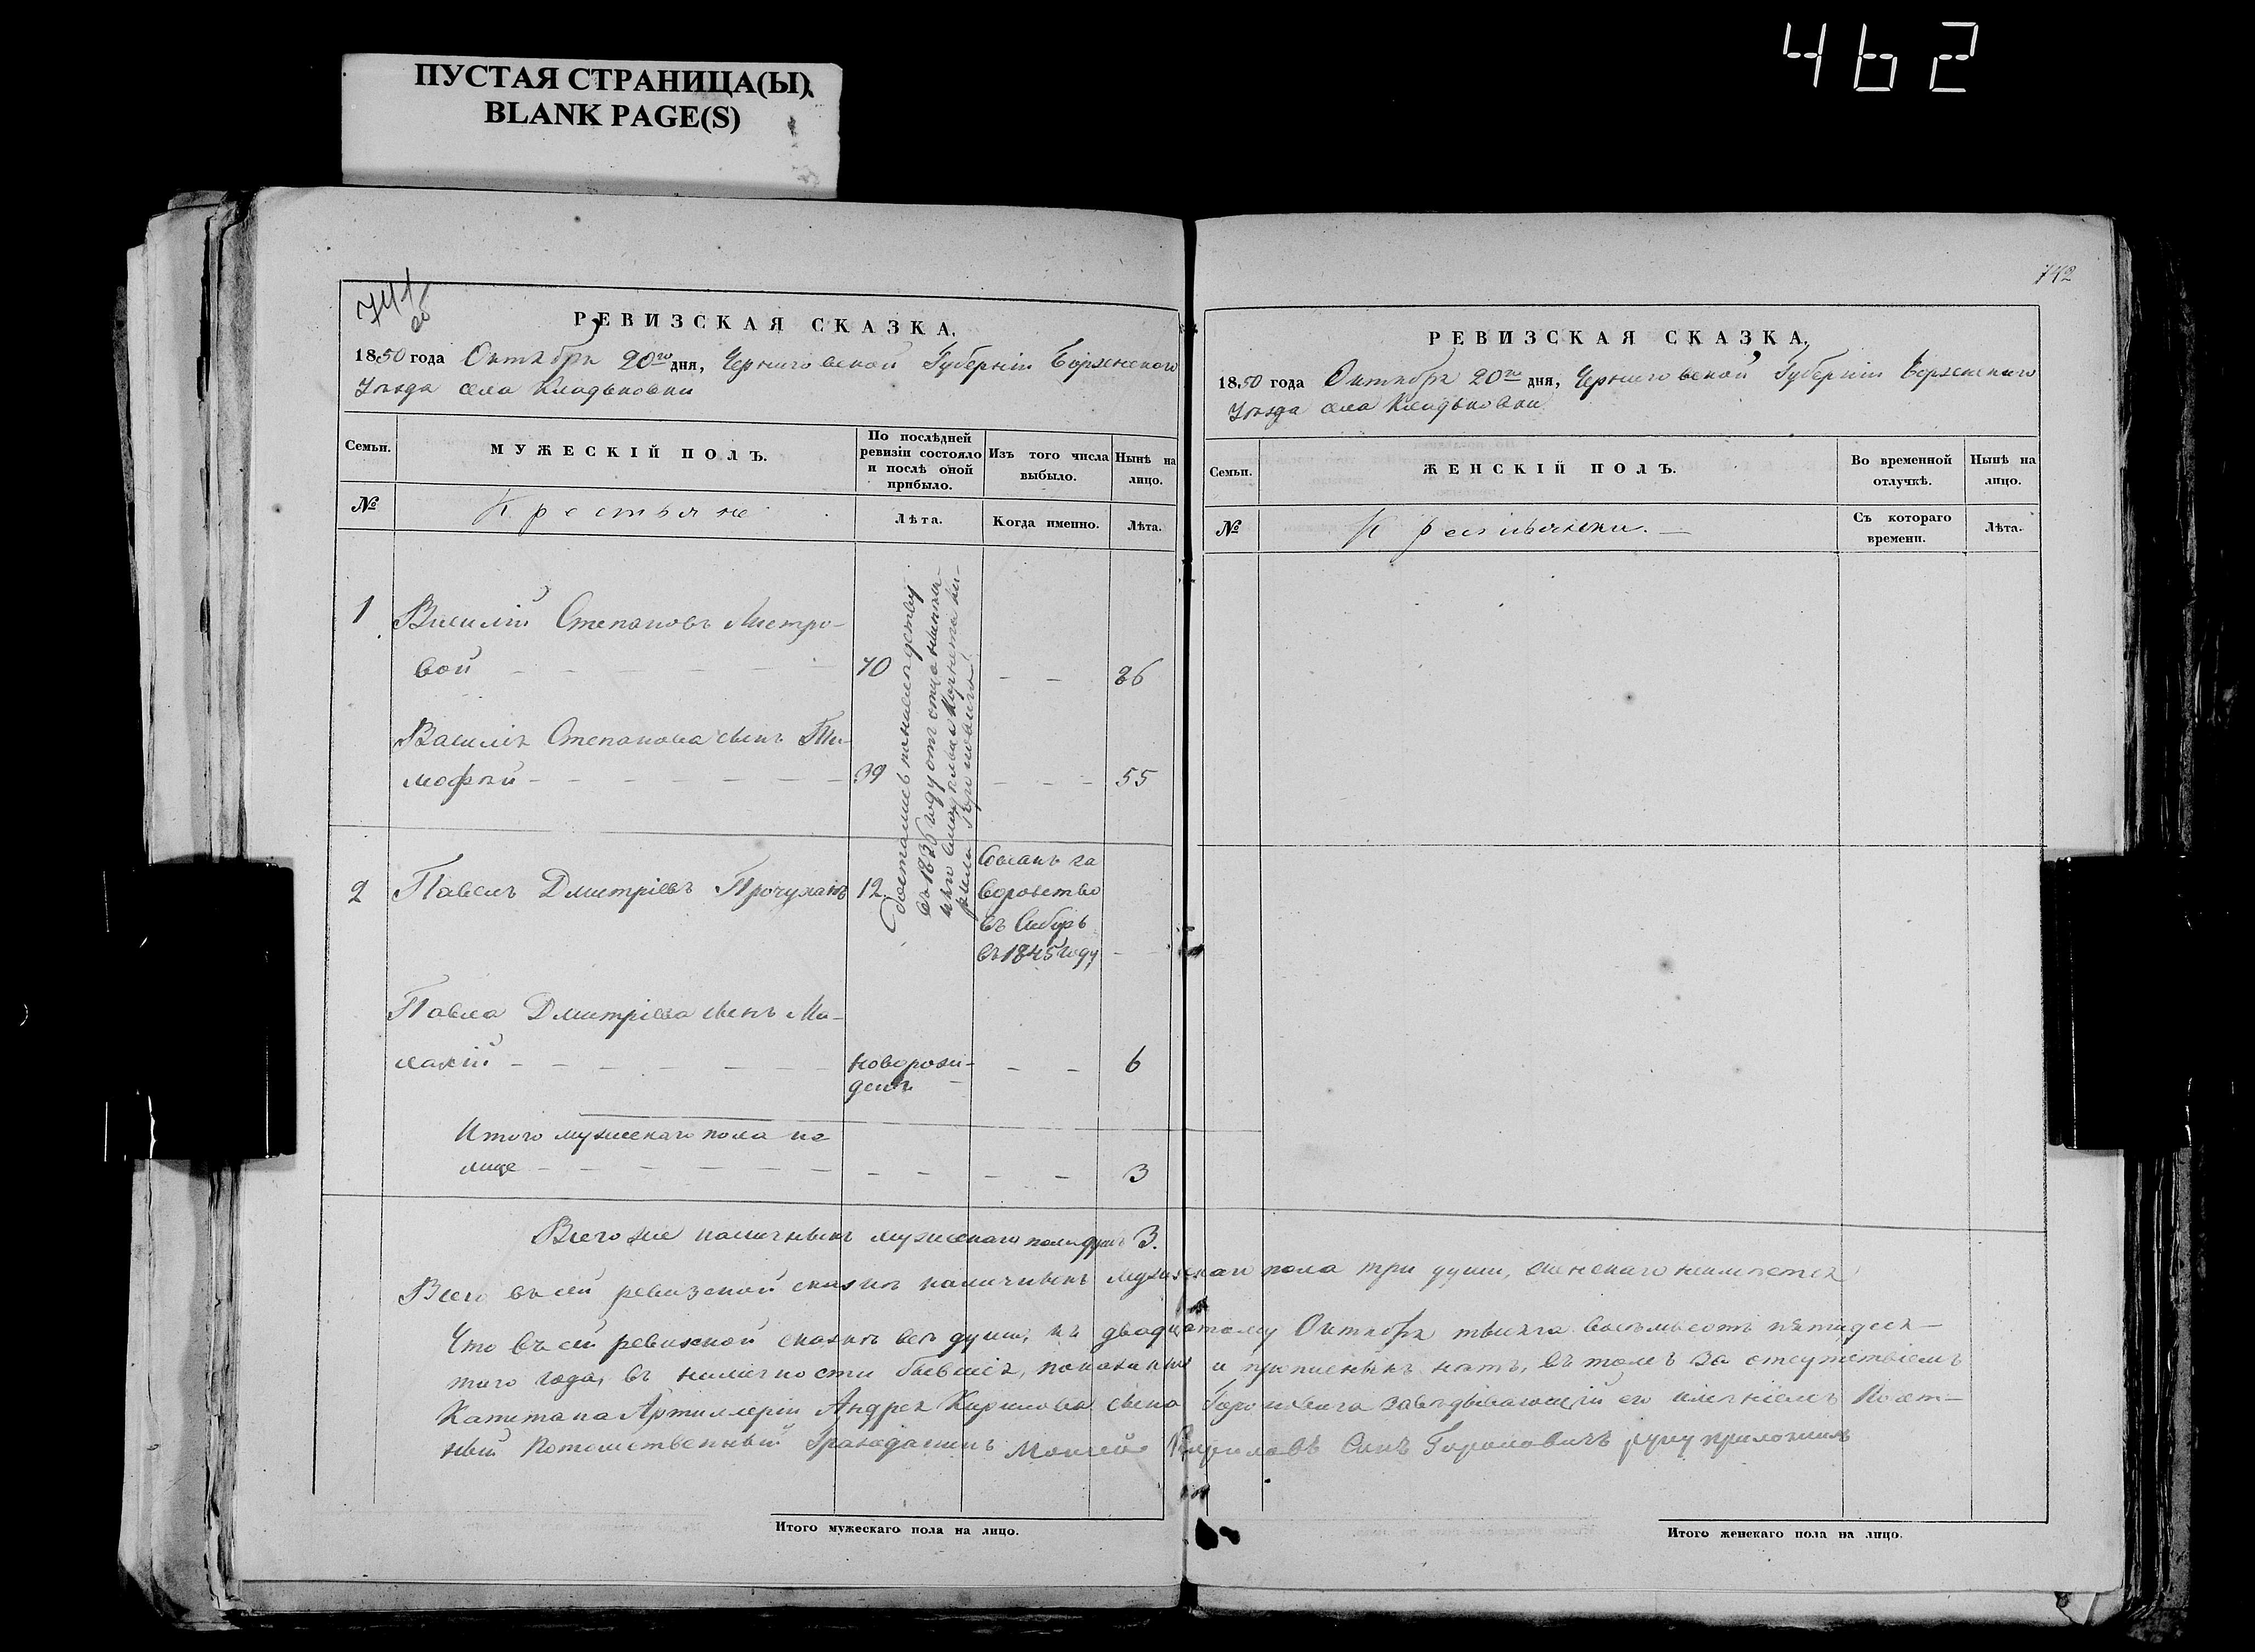 ПУСТАЯ СТРАНИЦА(Ы)
BLANK PAGE(S)
462
741
об
РЕВИЗСКАЯ СКАЗКА.
1850 года Октября 20го дня, Черниговской Губерніи Борзенского
Уѣзда села Кладьковки
Семьи.
МУЖЕСКІЙ ПОЛЪ.
По послѣдней ревизіи состояло и послѣ оной прибыло.
Изъ того числа выбыло.
Нынѣ на лицо.
№
Крестьяне
Лѣта.
Когда именно.
Лѣта.
1
Василій Степановъ
вой
70
86
Василія Степанова сынъ Ти-
мофѣй
39
55
Достались по наслѣдству
въ 1836 году отъ отца
2
Павелъ Дмитріевъ
12
Сосланъ за
воровство
въ Сибирь
въ 1845 году
Павла Дмитріева сынъ Ма-
лахій
новорож-
денъ
6
Итого мужескаго пола на
лице
3
Всего же наличныхъ мужескаго пола душъ 3.
Всего въ сей ревизской сказкѣ наличныхъ мужескаго пола три души, женскаго неимѣется
Что въ сей ревизской сказкѣ всѣ души, къ двадцатому Октября тысяча восемьсотъ пятидеся-
таго года, въ наличности бывшія, показаны и прописныхъ нѣтъ, въ томъ за отсутствіемъ
Капитана Артиллеріи Андрея Кирилова сына Гороновича завѣдывающій его имѣніемъ Почет-
ный Потомственный Гражданинъ Моисей Кириловъ Сынъ Гороновичъ руку приложилъ
Итого мужескаго пола на лицо.
742
РЕВИЗСКАЯ СКАЗКА.
1850 года Октября 20го дня, Черниговской Губерніи Борзенскаго
Уѣзда села Кладьковки
Семьи.
ЖЕНСКІЙ ПОЛЪ.
Во временной отлучкѣ.
Нынѣ на лицо.
№
Крестьянки.
Съ котораго времени.
Лѣта.
Итого женскаго пола на лицо.